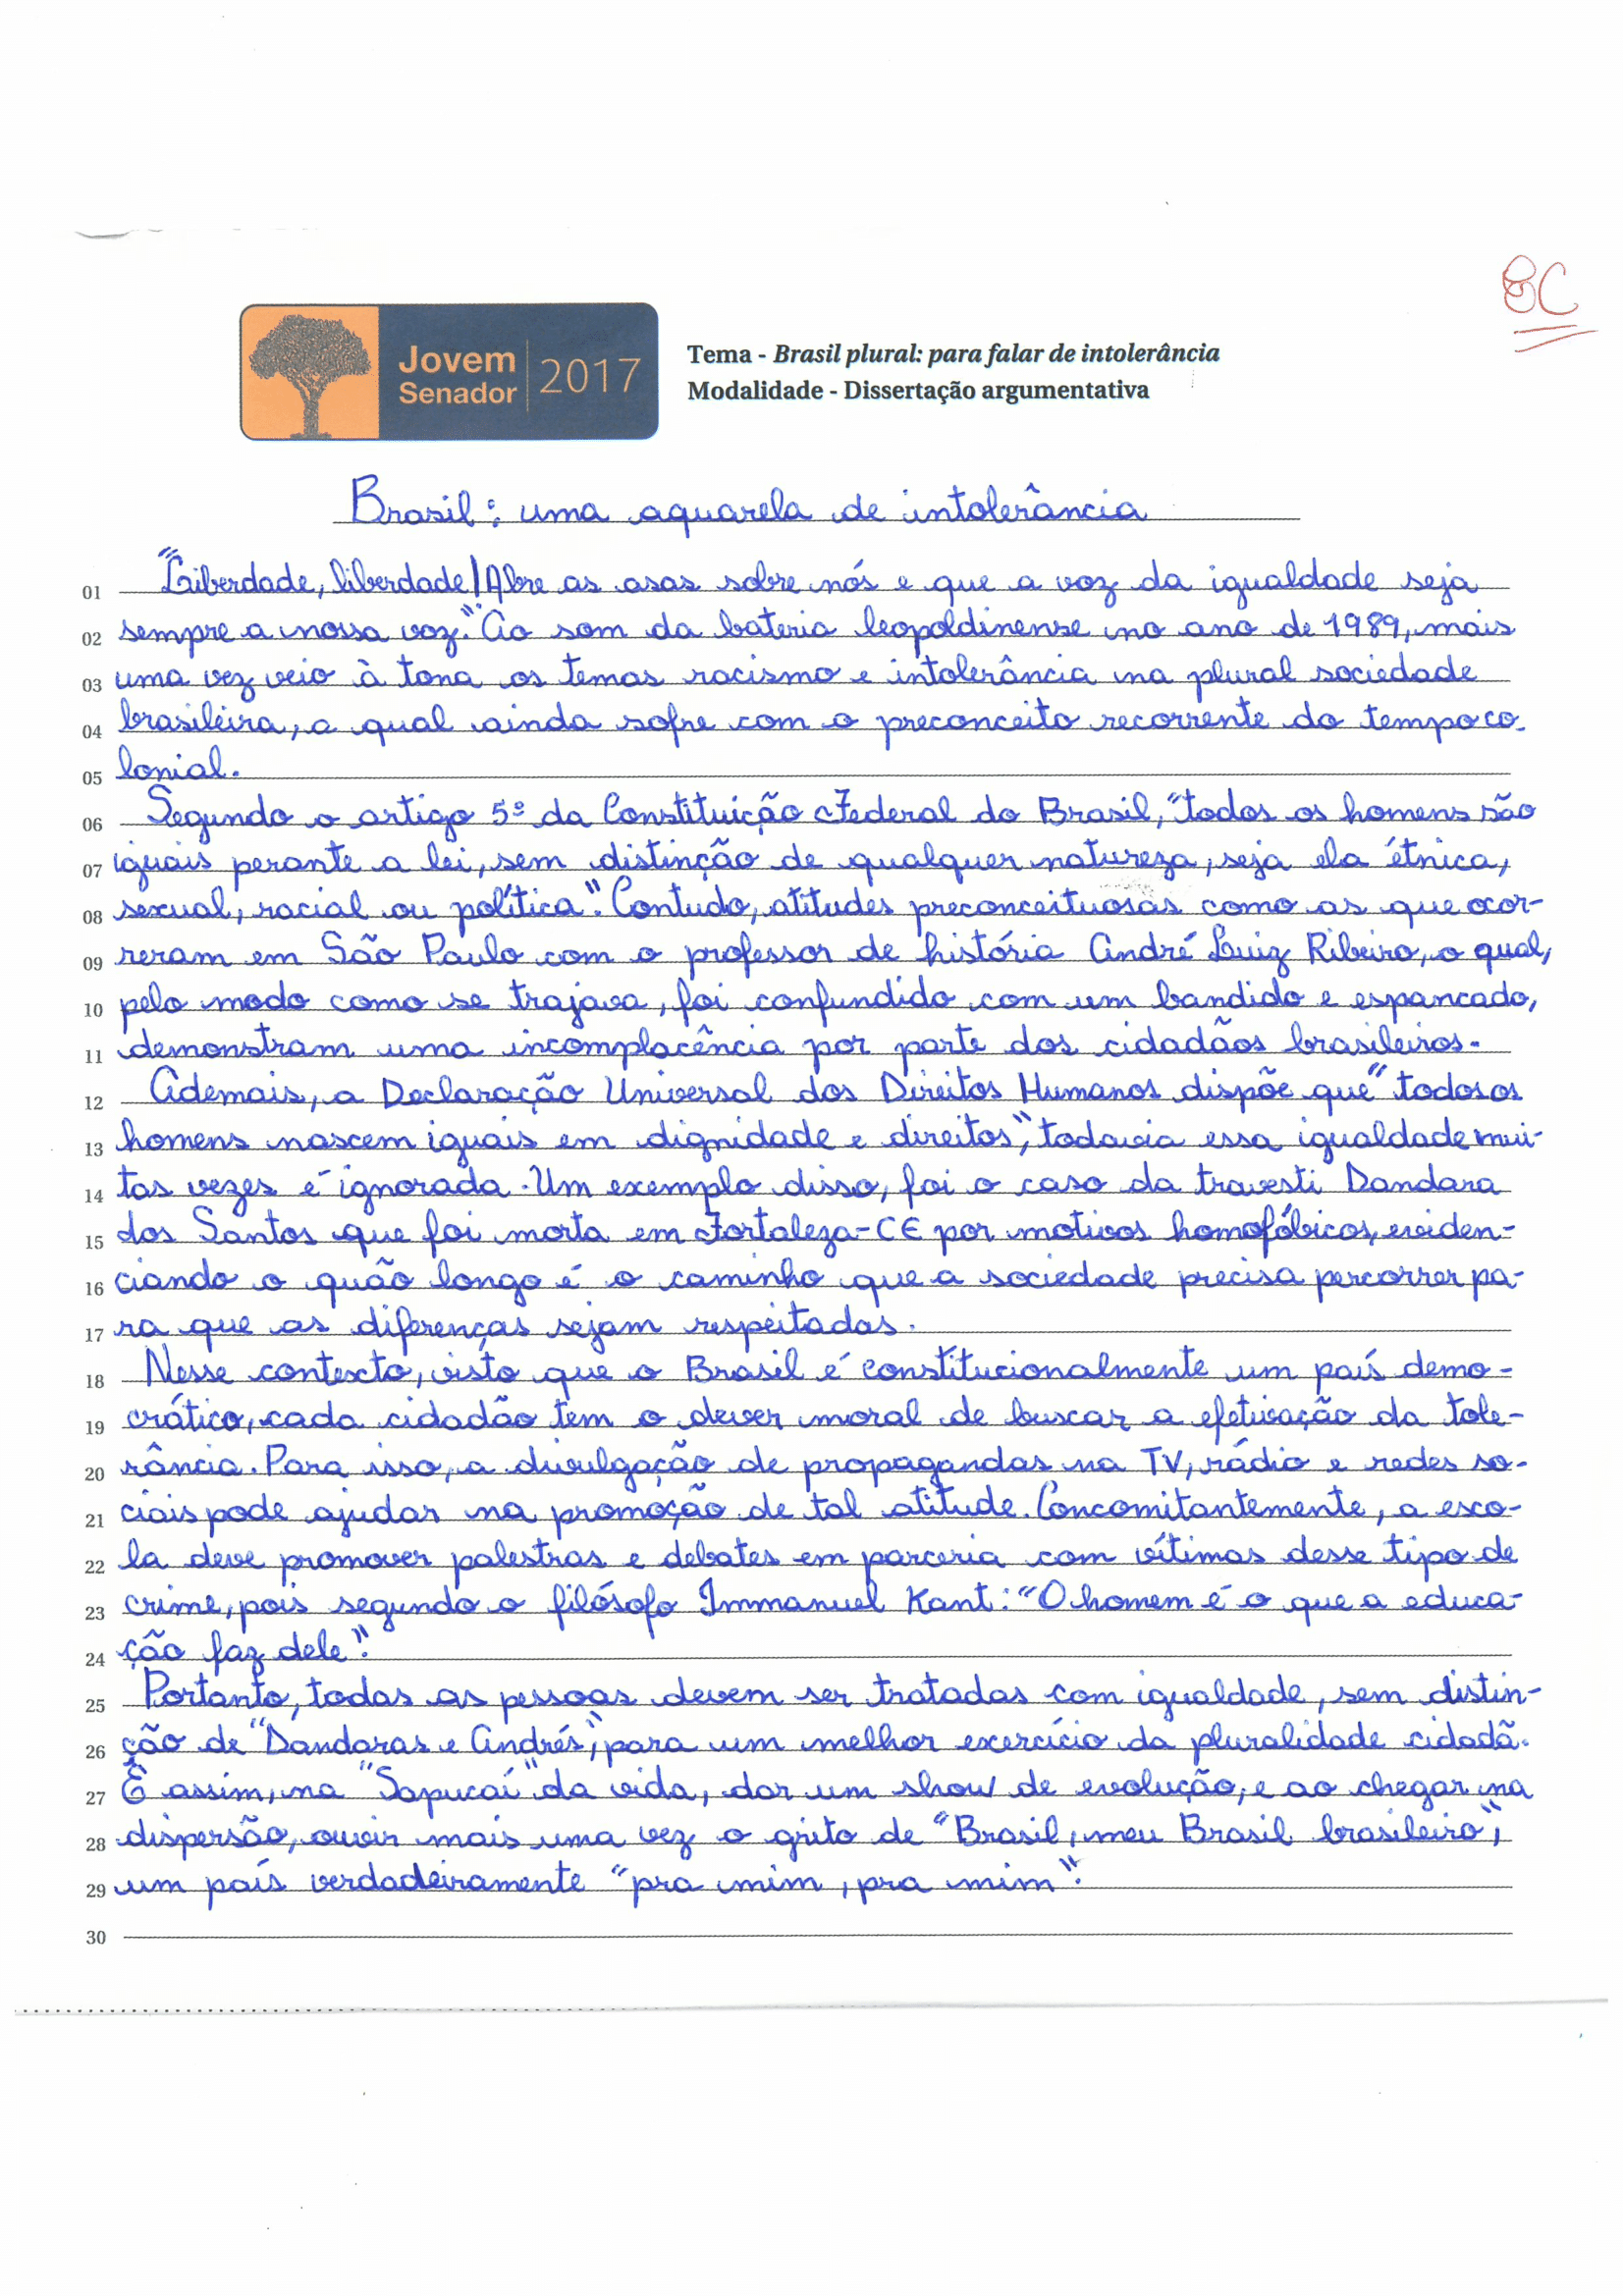 8C
Jovem
Senador
2017
Tema - Brasil plural: para falar de intolerância
Modalidade - Dissertação argumentativa
Brasil: uma aquarela de intolerância
01 "Liberdade, liberdade! Abre as asas sobre nós e que a voz da igualdade seja
02 sempre a nossa voz." Ao som da bateria leopoldinense no ano de 1989, mais
03 uma vez veio à tona os temas racismo e intolerância na plural sociedade
04 brasileira, a qual ainda sofre com o preconceito recorrente do tempo co-
05 lonial.
06 Segundo o artigo 5º da Constituição Federal do Brasil, "todos os homens são
07 iguais perante a lei, sem distinção de qualquer natureza, seja ela étnica,
08 sexual, racial ou política". Contudo, atitudes preconceituosas como as que ocor-
09 reram em São Paulo com o professor de história André Luiz Ribeiro, o qual,
10 pelo modo como se trajava, foi confundido com um bandido e espancado,
11 demonstram uma incomplacência por parte dos cidadãos brasileiros.
12 Ademais, a Declaração Universal dos Direitos Humanos dispõe que "todos os
13 homens nascem iguais em dignidade e direitos", todavia essa igualdade mui-
14 tas vezes é ignorada. Um exemplo disso, foi o caso da travesti Dandara
15 dos Santos que foi morta em Fortaleza-CE por motivos homofóbicos, eviden-
16 ciando o quão longo é o caminho que a sociedade precisa percorrer pa-
17 ra que as diferenças sejam respeitadas.
18 Nesse contexto, visto que o Brasil é constitucionalmente um país demo-
19 crático, cada cidadão tem o dever moral de buscar a efetivação da tole-
20 rância. Para isso, a divulgação de propagandas na TV, rádio e redes so-
21 ciais pode ajudar na promoção de tal atitude. Concomitantemente, a esco-
22 la deve promover palestras e debates em parceria com vítimas desse tipo de
23 crime, pois segundo o filósofo Immanuel Kant: "O homem é o que a educa-
24 ção faz dele".
25 Portanto, todas as pessoas devem ser tratadas com igualdade, sem distin-
26 ção de "Dandaras e Andrés", para um melhor exercício da pluralidade cidadã.
27 E assim, na "Sapucaí" da vida, dar um show de evolução, e ao chegar na
28 dispersão, ouvir mais uma vez o grito de "Brasil, meu Brasil brasileiro",
29 um país verdadeiramente "pra mim, pra mim".
30